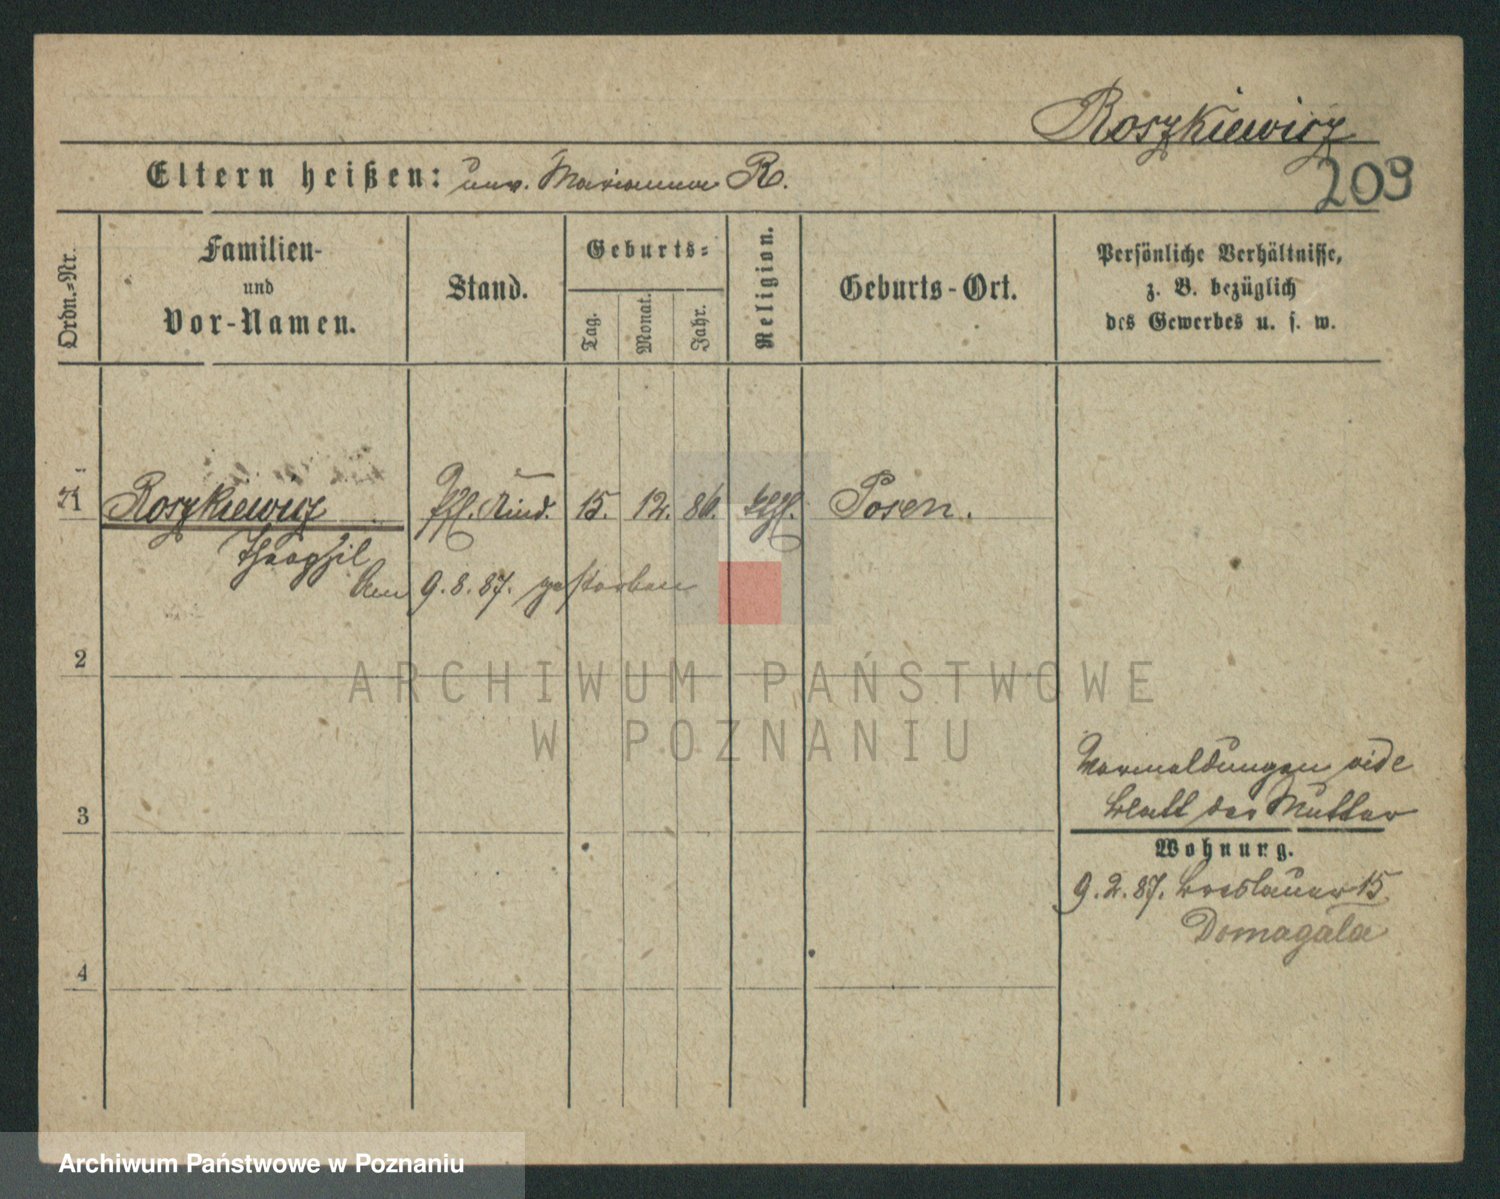 Roszkiewicz
209
Eltern heißen: unv. Marianna R.
Ordn.=Nr.
Familien-
und
Vor-Namen.
Stand.
Geburts=
Tag.
Monat.
Jahr.
Religion.
Geburts-Ort.
Persönliche Verhältnisse,
z. B. bezüglich
des Gewerbes u. s. w.
1 Roszkiewicz Pfl. Kind. 15. 12. 86. kthl. Posen.
Theophil
Am 9.8.87. gestorben
2
ARCHIWUM PAŃSTWOWE
W POZNANIU
3
vide
Blatt der Mutter
Wohnung.
9.2.87. Breslauer 15
Domagala
4
Archiwum Państwowe w Poznaniu